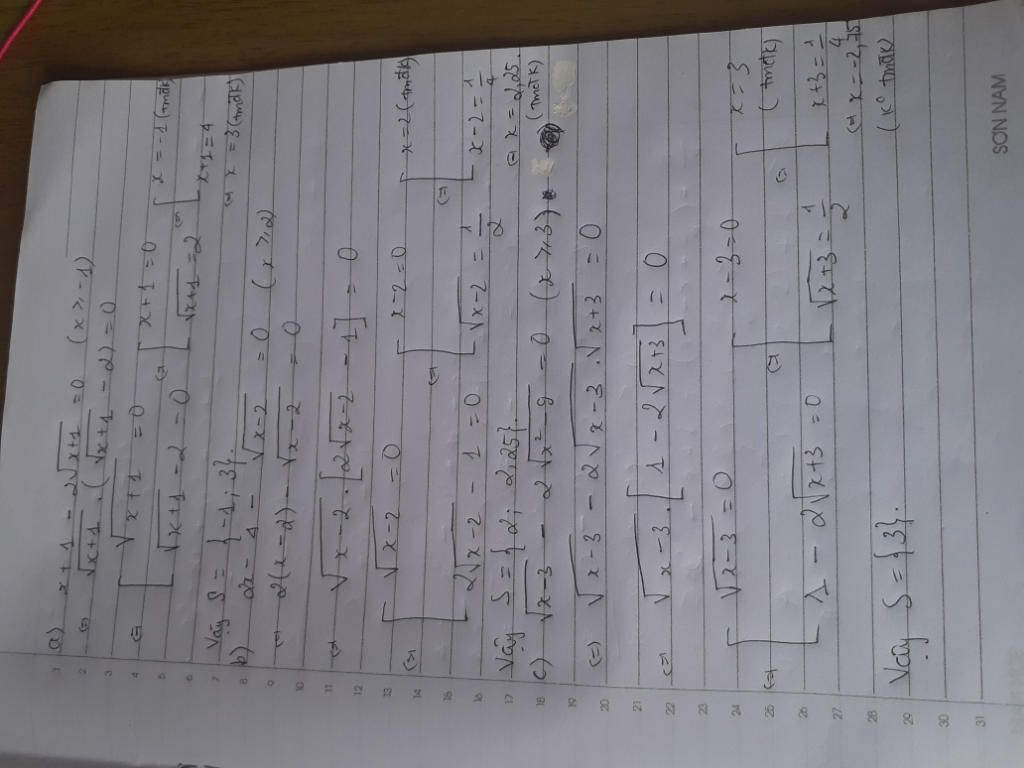 a) x + 1 - 2√(x+1) = 0 (x ≥ -1)
(=) √(x+1) . (√(x+1) - 2) = 0
(=) [ √(x+1) = 0 (=) [ x + 1 = 0 (=) [ x = -1 (tmđk)
√(x+1) - 2 = 0 √(x+1) = 2 x + 1 = 4
(=) x = 3 (tmđk)
Vậy S = {-1; 3}.
b) 2x - 4 - √(x-2) = 0 (x ≥ 2)
(=) 2(x-2) - √(x-2) = 0
(=) √(x-2) . [2√(x-2) - 1] = 0
(=) [ √(x-2) = 0 (=) [ x - 2 = 0 (=) [ x = 2 (tmđk)
2√(x-2) - 1 = 0 √(x-2) = 1/2 x - 2 = 1/4
(=) x = 2,25 (tmđk)
Vậy S = {2; 2,25}.
c) √(x-3) - 2√(x²-9) = 0 (x ≥ 3)
(=) √(x-3) - 2√(x-3) . √(x+3) = 0
(=) √(x-3) . [1 - 2√(x+3)] = 0
(=) [ √(x-3) = 0 (=) [ x - 3 = 0 (=) [ x = 3 (tmđk)
1 - 2√(x+3) = 0 √(x+3) = 1/2 x + 3 = 1/4
(=) x = -2,75
(K° tmđk)
Vậy S = {3}.
SON NAM